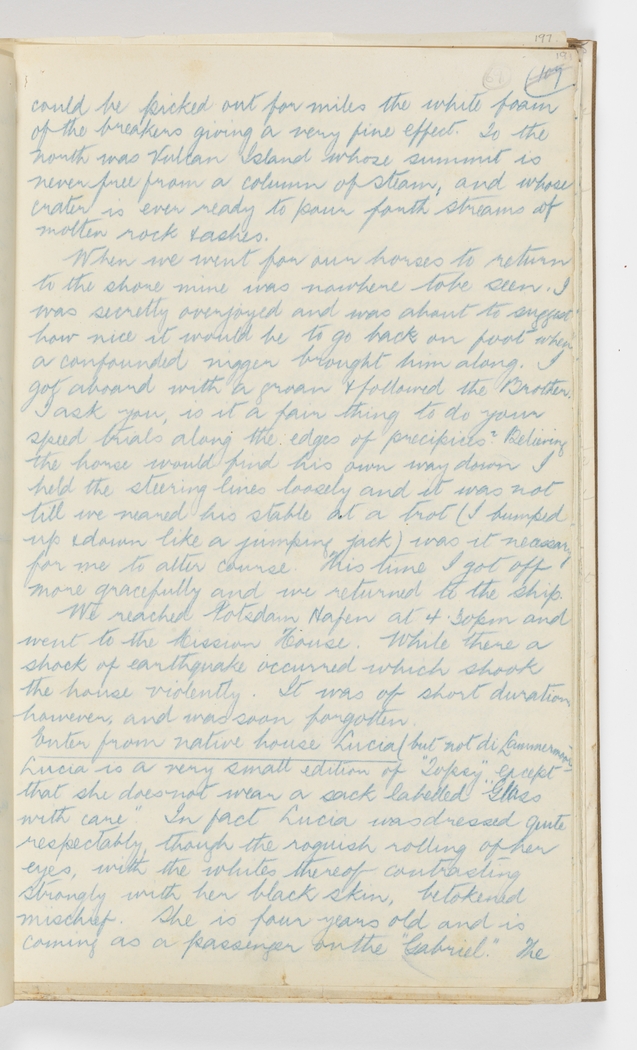 197
191
109
could be picked out for miles the white foam
of the breakers giving a very fine effect. To the
north was Vulcan Island whose summit is
never free from a column of steam, and whose
crater is ever ready to pour forth streams of
molten rock & ashes.
When we went for our horses to return
to the shore mine was nowhere to be seen. I
was secretly overjoyed and was about to suggest
how nice it would be to go back on foot when
a confounded nigger brought him along. I
got aboard with a groan & followed the Brother.
I ask you, is it a fair thing to do your
speed trials along the edges of precipices? Believing
the horse would find his own way down I
held the steering lines loosely and it was not
till we neared his stable at a trot (I bumped
up & down like a jumping jack) was it necessary
for me to alter course. This time I got off
more gracefully and we returned to the ship.
We reached Potsdam Hafen at 4.30pm and
went to the Mission House. While there a
shock of earthquake occurred which shook
the house violently. It was of short duration
however, and was soon forgotten.
Enter from native house Lucia (but not di Lammermoor)
Lucia is a very small edition of "Topsy", except
that she does not wear a sack labelled "Glass
with care". In fact Lucia was dressed quite
respectably, though the roguish rolling of her
eyes, with the whites thereof contrasting
strongly with her black skin, betokened
mischief. She is four years old and is
coming as a passenger on the "Gabriel." The